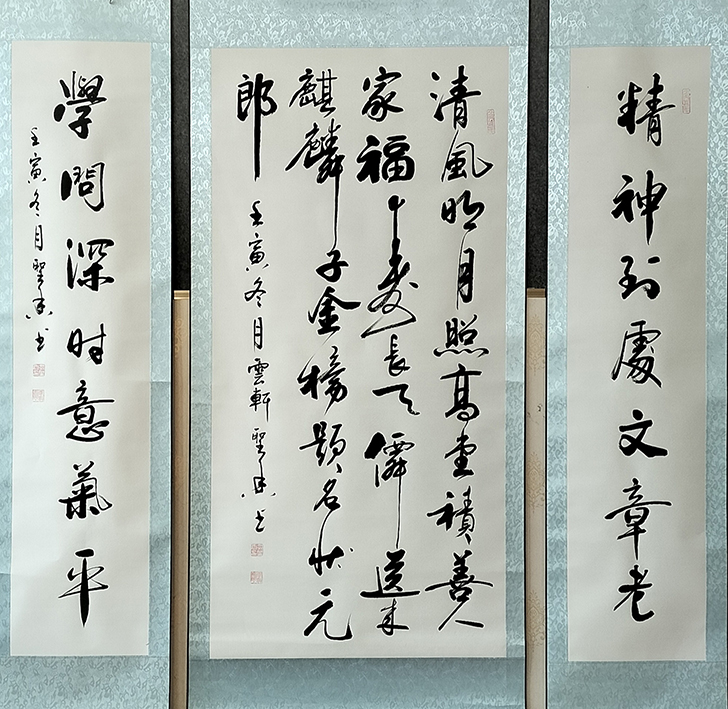 精神到處文章老
清風明月照高堂積善人
家福壽長天僊送来
麒麟子金榜題名状元
郎
壬寅冬月雲軒聖书
學問深时意氣平
壬寅冬月聖书